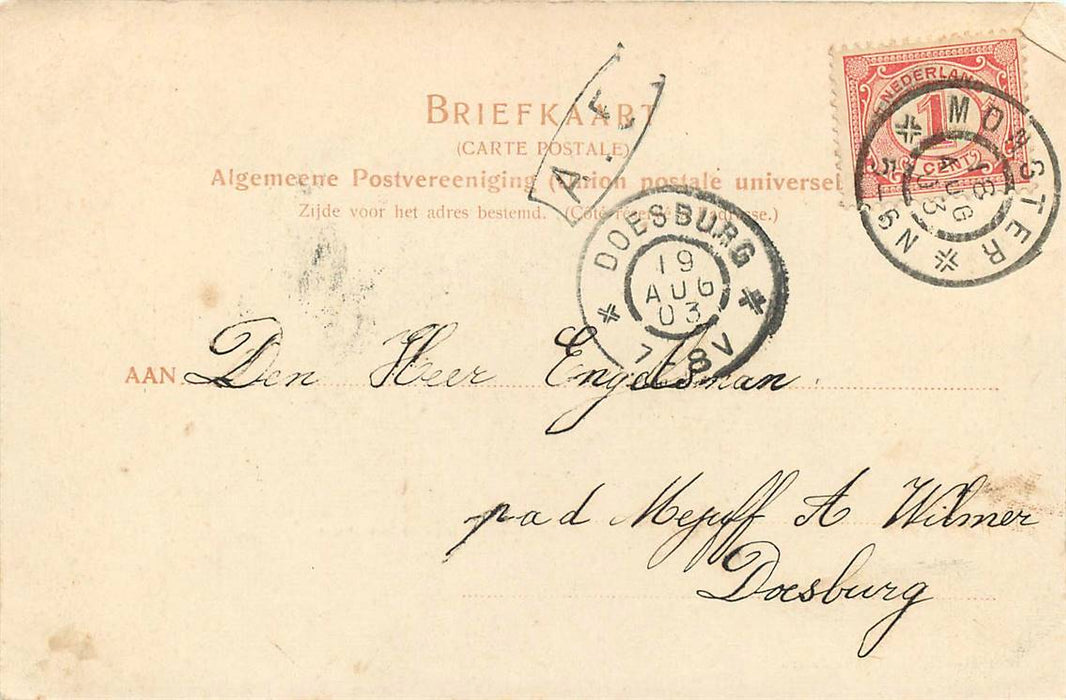 BRIEFKAART
(CARTE POSTALE)
Algemeene Postvereeniging (Union postale universel
Zijde voor het adres bestemd. (Côté réservé à l'adresse.)
A.F
NEDERLAND
1
CENT
MONSTER
18
AUG
03
5-6N
DOESBURG
19
AUG
03
7-8V
AAN Den Heer Engelsman.
pad Mejuff A Wilmer
Doesburg